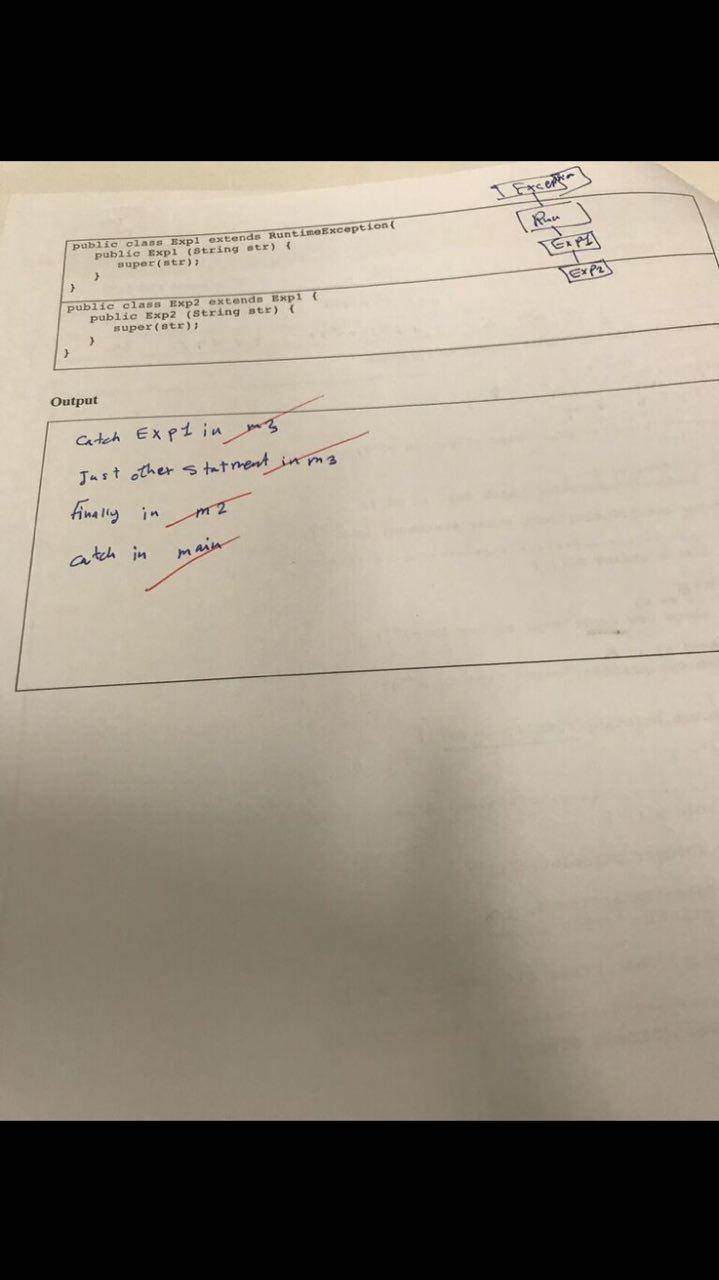 Exception
Run
Exp1
Exp2
public class Exp1 extends RuntimeException{
public Exp1 (String str) {
super(str);
}
}
public class Exp2 extends Exp1 {
public Exp2 (String str) {
super(str);
}
}
Output
Catch Exp1 in m3
Just other statment in m3
finally in m2
catch in main